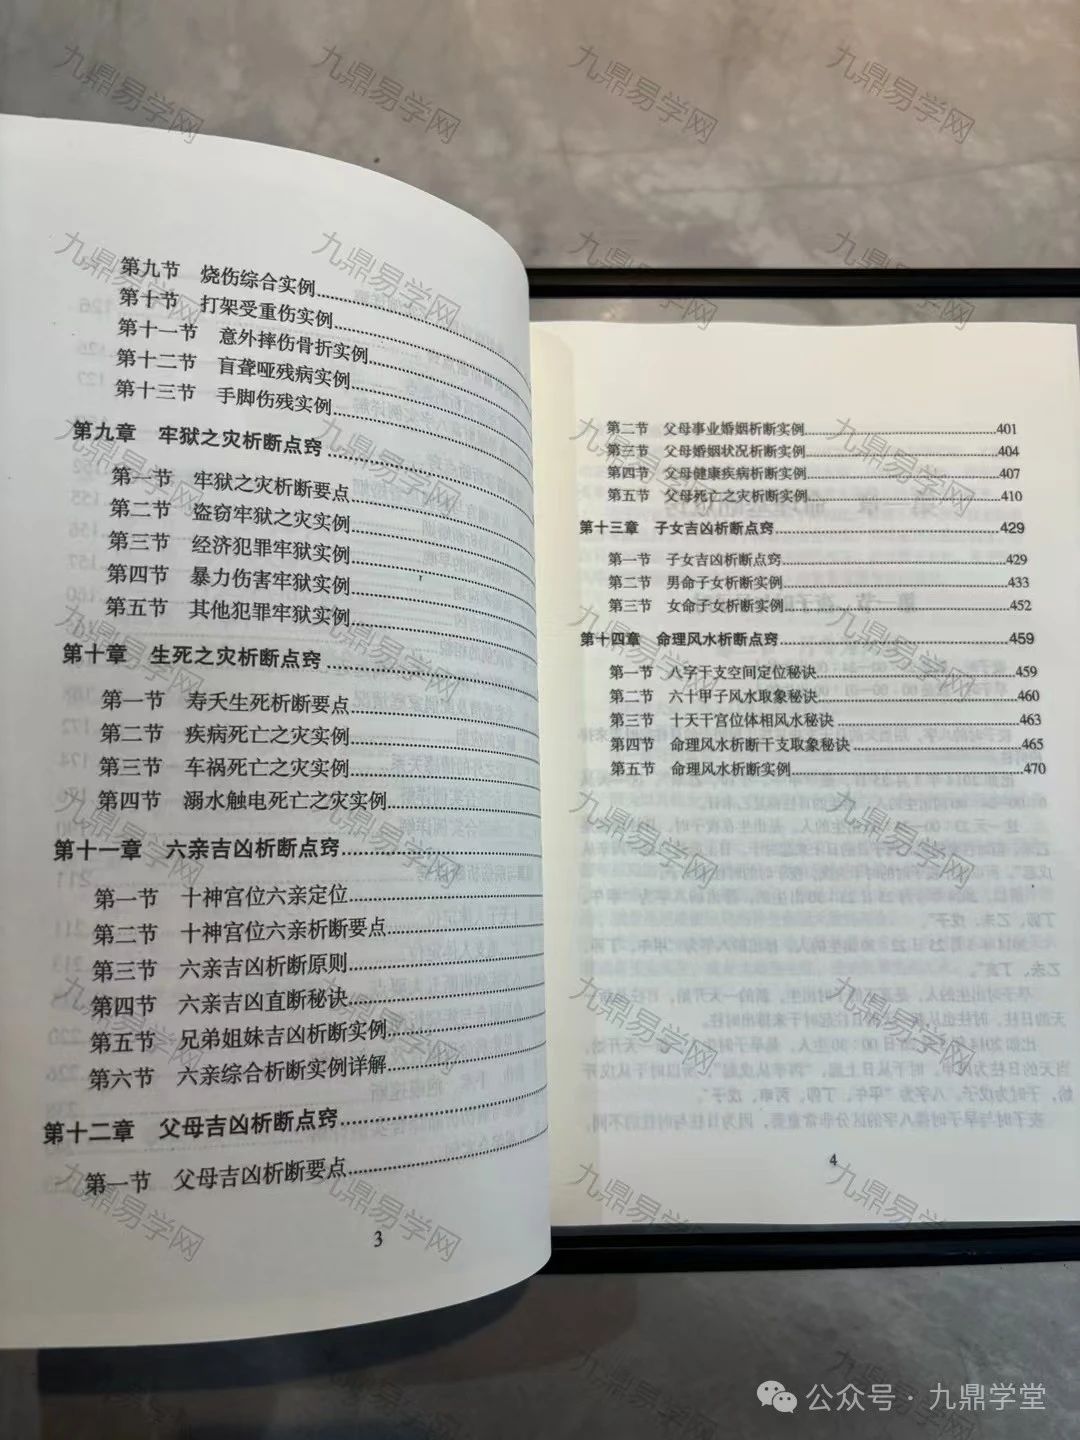 第九节 烧伤综合实例
第十节 打架受重伤实例
第十一节 意外摔伤骨折实例
第十二节 盲聋哑残病实例
第十三节 手脚伤残实例
第九章 牢狱之灾析断点窍
第一节 牢狱之灾析断要点
第二节 盗窃牢狱之灾实例
第三节 经济犯罪牢狱实例
第四节 暴力伤害牢狱实例
第五节 其他犯罪牢狱实例
第十章 生死之灾析断点窍
第一节 寿夭生死析断要点
第二节 疾病死亡之灾实例
第三节 车祸死亡之灾实例
第四节 溺水触电死亡之灾实例
第十一章 六亲吉凶析断点窍
第一节 十神宫位六亲定位
第二节 十神宫位六亲析断要点
第三节 六亲吉凶析断原则
第四节 六亲吉凶直断秘诀
第五节 兄弟姐妹吉凶析断实例
第六节 六亲综合析断实例详解
第十二章 父母吉凶析断点窍
第一节 父母吉凶析断要点
3
第二节 父母事业婚姻析断实例 401
第三节 父母婚姻状况析断实例 404
第四节 父母健康疾病析断实例 407
第五节 父母死亡之灾析断实例 410
第十三章 子女吉凶析断点窍 429
第一节 子女吉凶析断点窍 429
第二节 男命子女析断实例 433
第三节 女命子女析断实例 452
第十四章 命理风水析断点窍 459
第一节 八字干支空间定位秘诀 459
第二节 六十甲子风水取象秘诀 460
第三节 十天干宫位体相风水秘诀 463
第四节 命理风水析断干支取象秘诀 465
第五节 命理风水析断实例 470
4
九鼎易学网
公众号·九鼎学堂